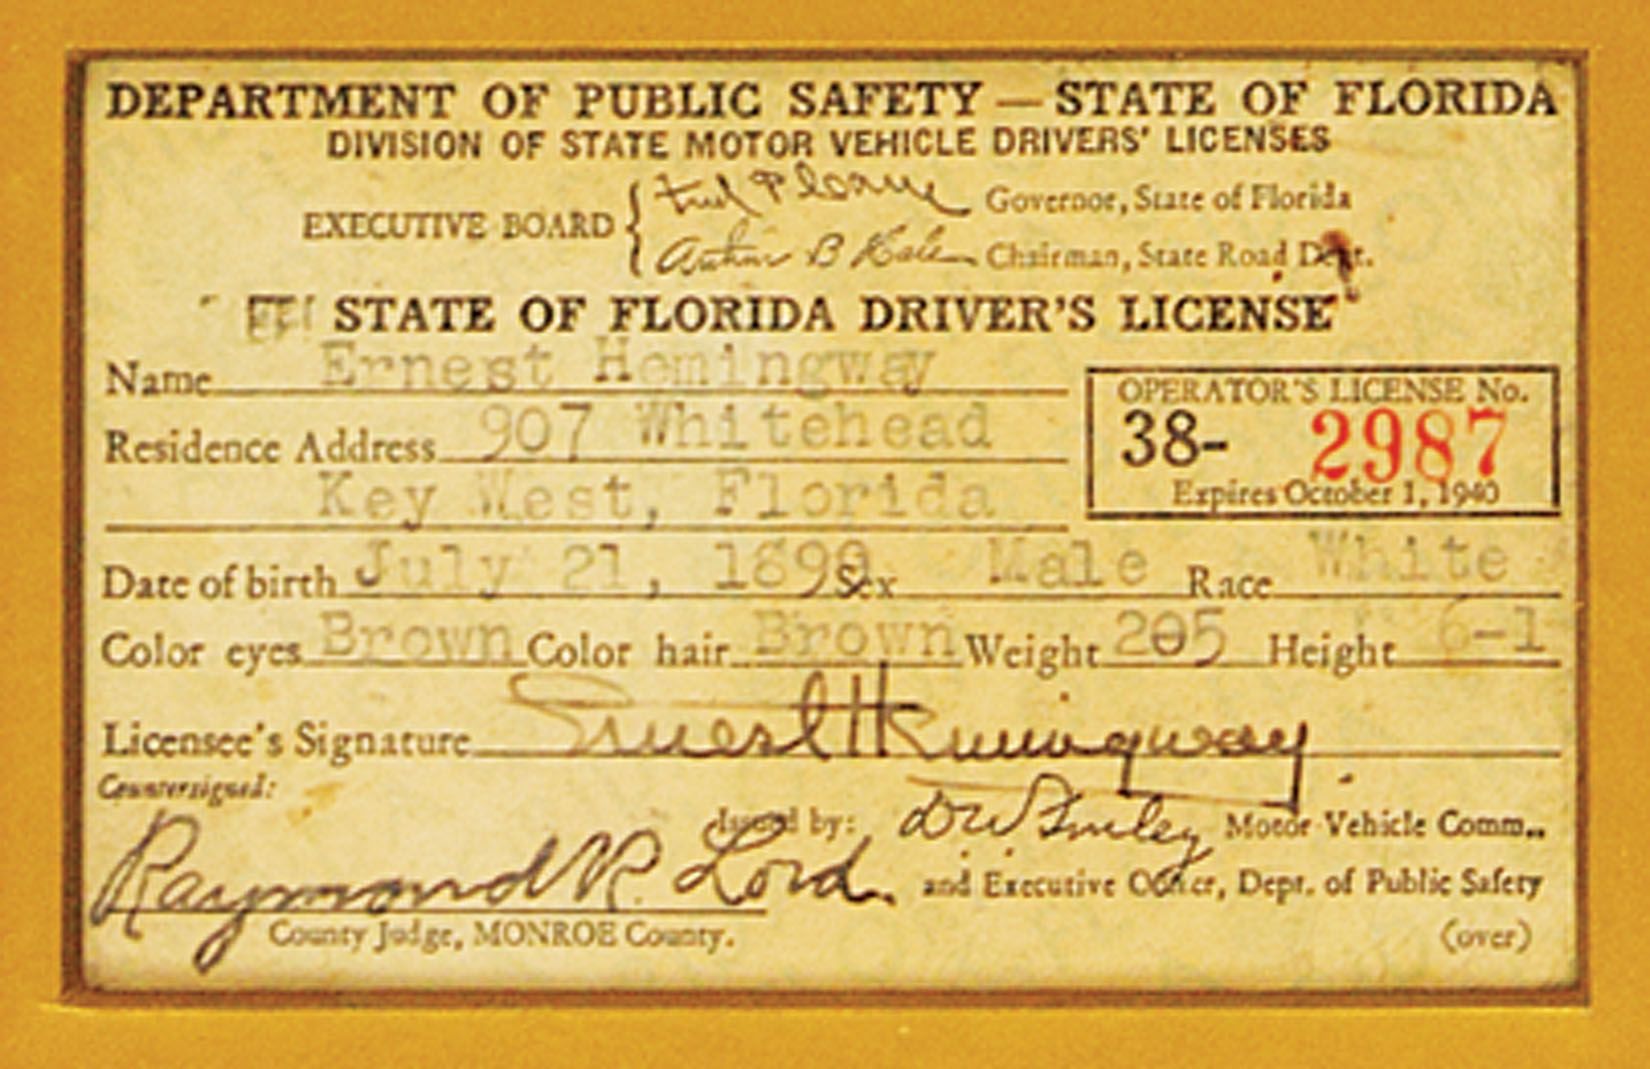 DEPARTMENT OF PUBLIC SAFETY — STATE OF FLORIDA
DIVISION OF STATE MOTOR VEHICLE DRIVERS' LICENSES
EXECUTIVE BOARD { Fred P Cone Governor, State of Florida
Arthur B Hale Chairman, State Road Dept.
STATE OF FLORIDA DRIVER'S LICENSE
Name Ernest Hemingway
OPERATOR'S LICENSE No.
Residence Address 907 Whitehead
38- 2987
Key West, Florida
Expires October 1, 1940
Date of birth July 21, 1899 Sex Male Race White
Color eyes Brown Color hair Brown Weight 205 Height 6-1
Licensee's Signature Ernest Hemingway
Countersigned:
Issued by: DW Smiley Motor Vehicle Comm..
Raymond R. Lord. and Executive Officer, Dept. of Public Safety
County Judge, MONROE County. (over)